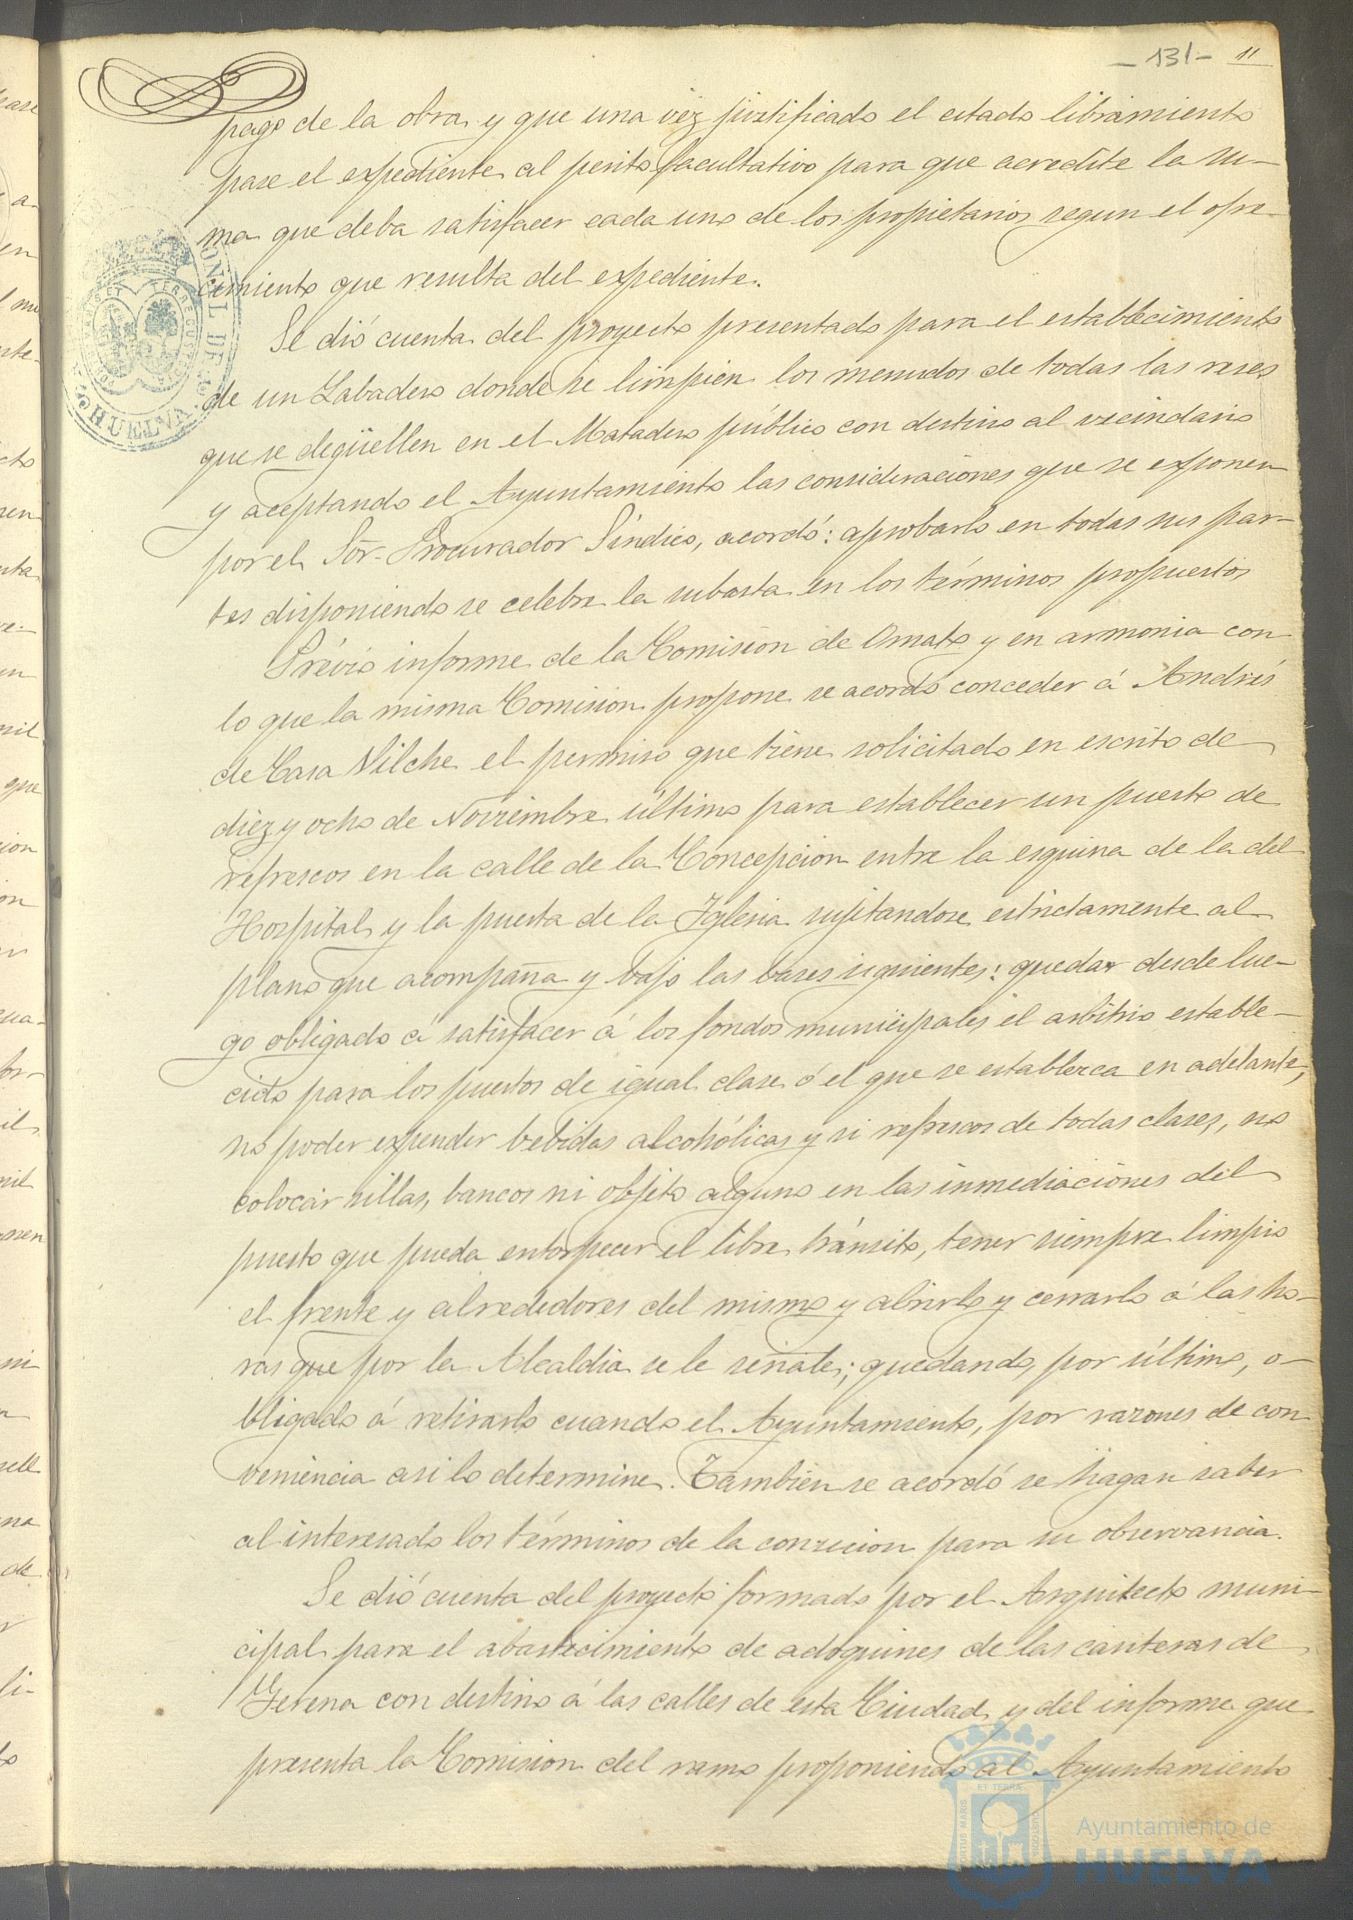 -131- 11
pago de la obra y que una véz justificado el citado libramiento
pase el expediente al perito facultativo para que acredite la su-
ma que deba satisfacer cada uno de los propietarios segun el ofre-
cimiento que resulta del expediente.
Se dió cuenta del proyecto presentado para el establecimiento
de un Labadero donde se limpien los menudos de todas las reses
que se degüellen en el Matadero público con destino al vecindario
y aceptando el Ayuntamiento las consideraciones que se exponen
por el Sõr. Procurador Síndico, acordó: aprobarlo en todas sus par-
tes disponiendo se celebre la subasta en los términos propuestos
Prévio informe de la Comision de Ornato y en armonia con
lo que la misma Comision propone se acordó conceder á Andrés
de Casa Vilche el permiso que tiene solicitado en escrito de
diez y ocho de Noviembre último para establecer un puesto de
refrescos en la calle de la Concepcion entre la esquina de la del
Hospital y la puerta de la Iglesia sujetandose estrictamente al
plano que acompaña y bajo las bases siguientes: quedar desde lue-
go obligado á satisfacer á los fondos municipales el arbitrio estable-
cido para los puestos de igual clase ó el que se establezca en adelante;
no poder expender bebidas alcohólicas y si refrescos de todas clases, no
colocar sillas, bancos ni objeto alguno en las inmediaciones del
puesto que pueda entorpecer el libre tránsito, tener siempre limpio
el frente y alrededores del mismo y abrirlo y cerrarlo á las ho-
ras que por la Alcaldia se le señale; quedando, por último, o-
bligado á retirarlo cuando el Ayuntamiento, por razones de con
veniencia asi lo determine. Tambien se acordó se hagan saber
al interesado los términos de la concesion para su observancia.
Se dió cuenta del proyecto formado por el Arquitecto muni-
cipal para el abastecimiento de adoquines de las canteras de
Gerena con destino á las calles de esta Ciudad y del informe que
presenta la Comision del ramo proponiendo al Ayuntamiento
HUELVA
Ayuntamiento de
HUELVA